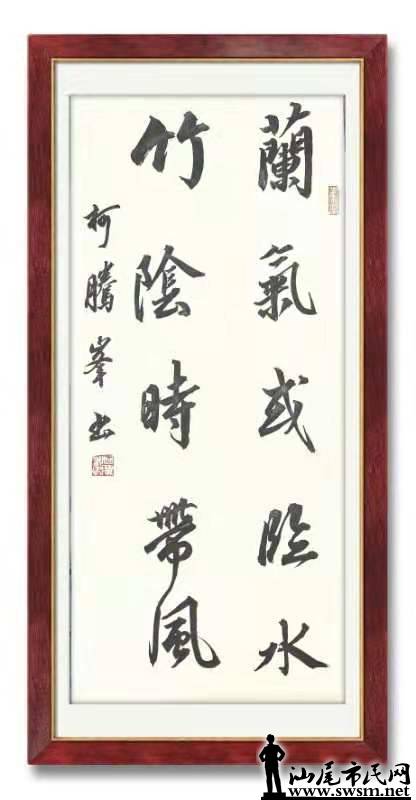 蘭氣或臨水
竹陰時帶風
柯騰峯书
汕尾市民网
www.swsm.net